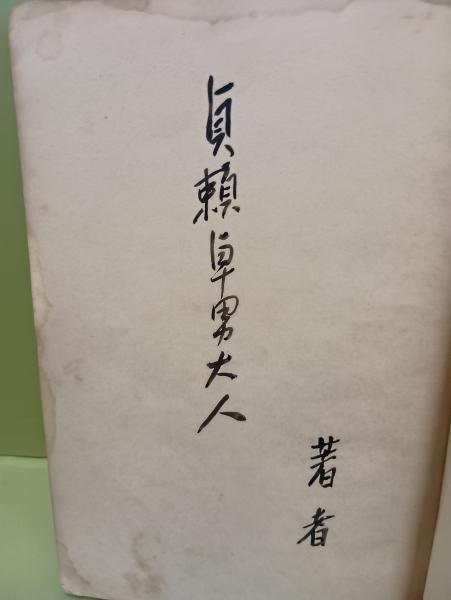 貞頼卓男大人
著者